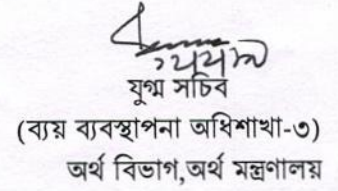 যুগ্ম সচিব
(ব্যয় ব্যবস্থাপনা অধিশাখা-৩)
অর্থ বিভাগ,অর্থ মন্ত্রণালয়